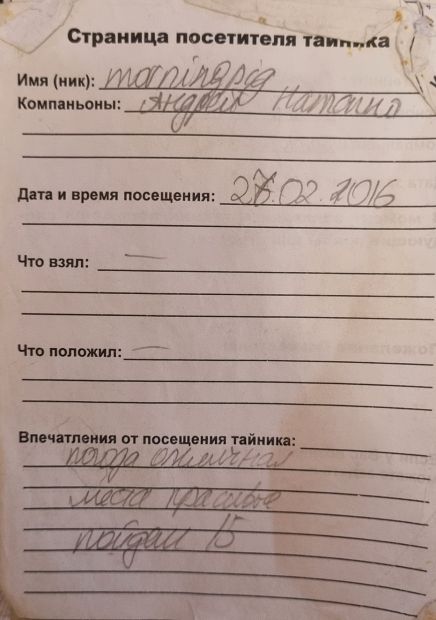 Страница посетителя тайника
Имя (ник): morningpig
Компаньоны: Андрей Наташа
Дата и время посещения: 27.02.2016
Что взял: —
Что положил: —
Впечатления от посещения тайника:
погода отличная
места красивые
15